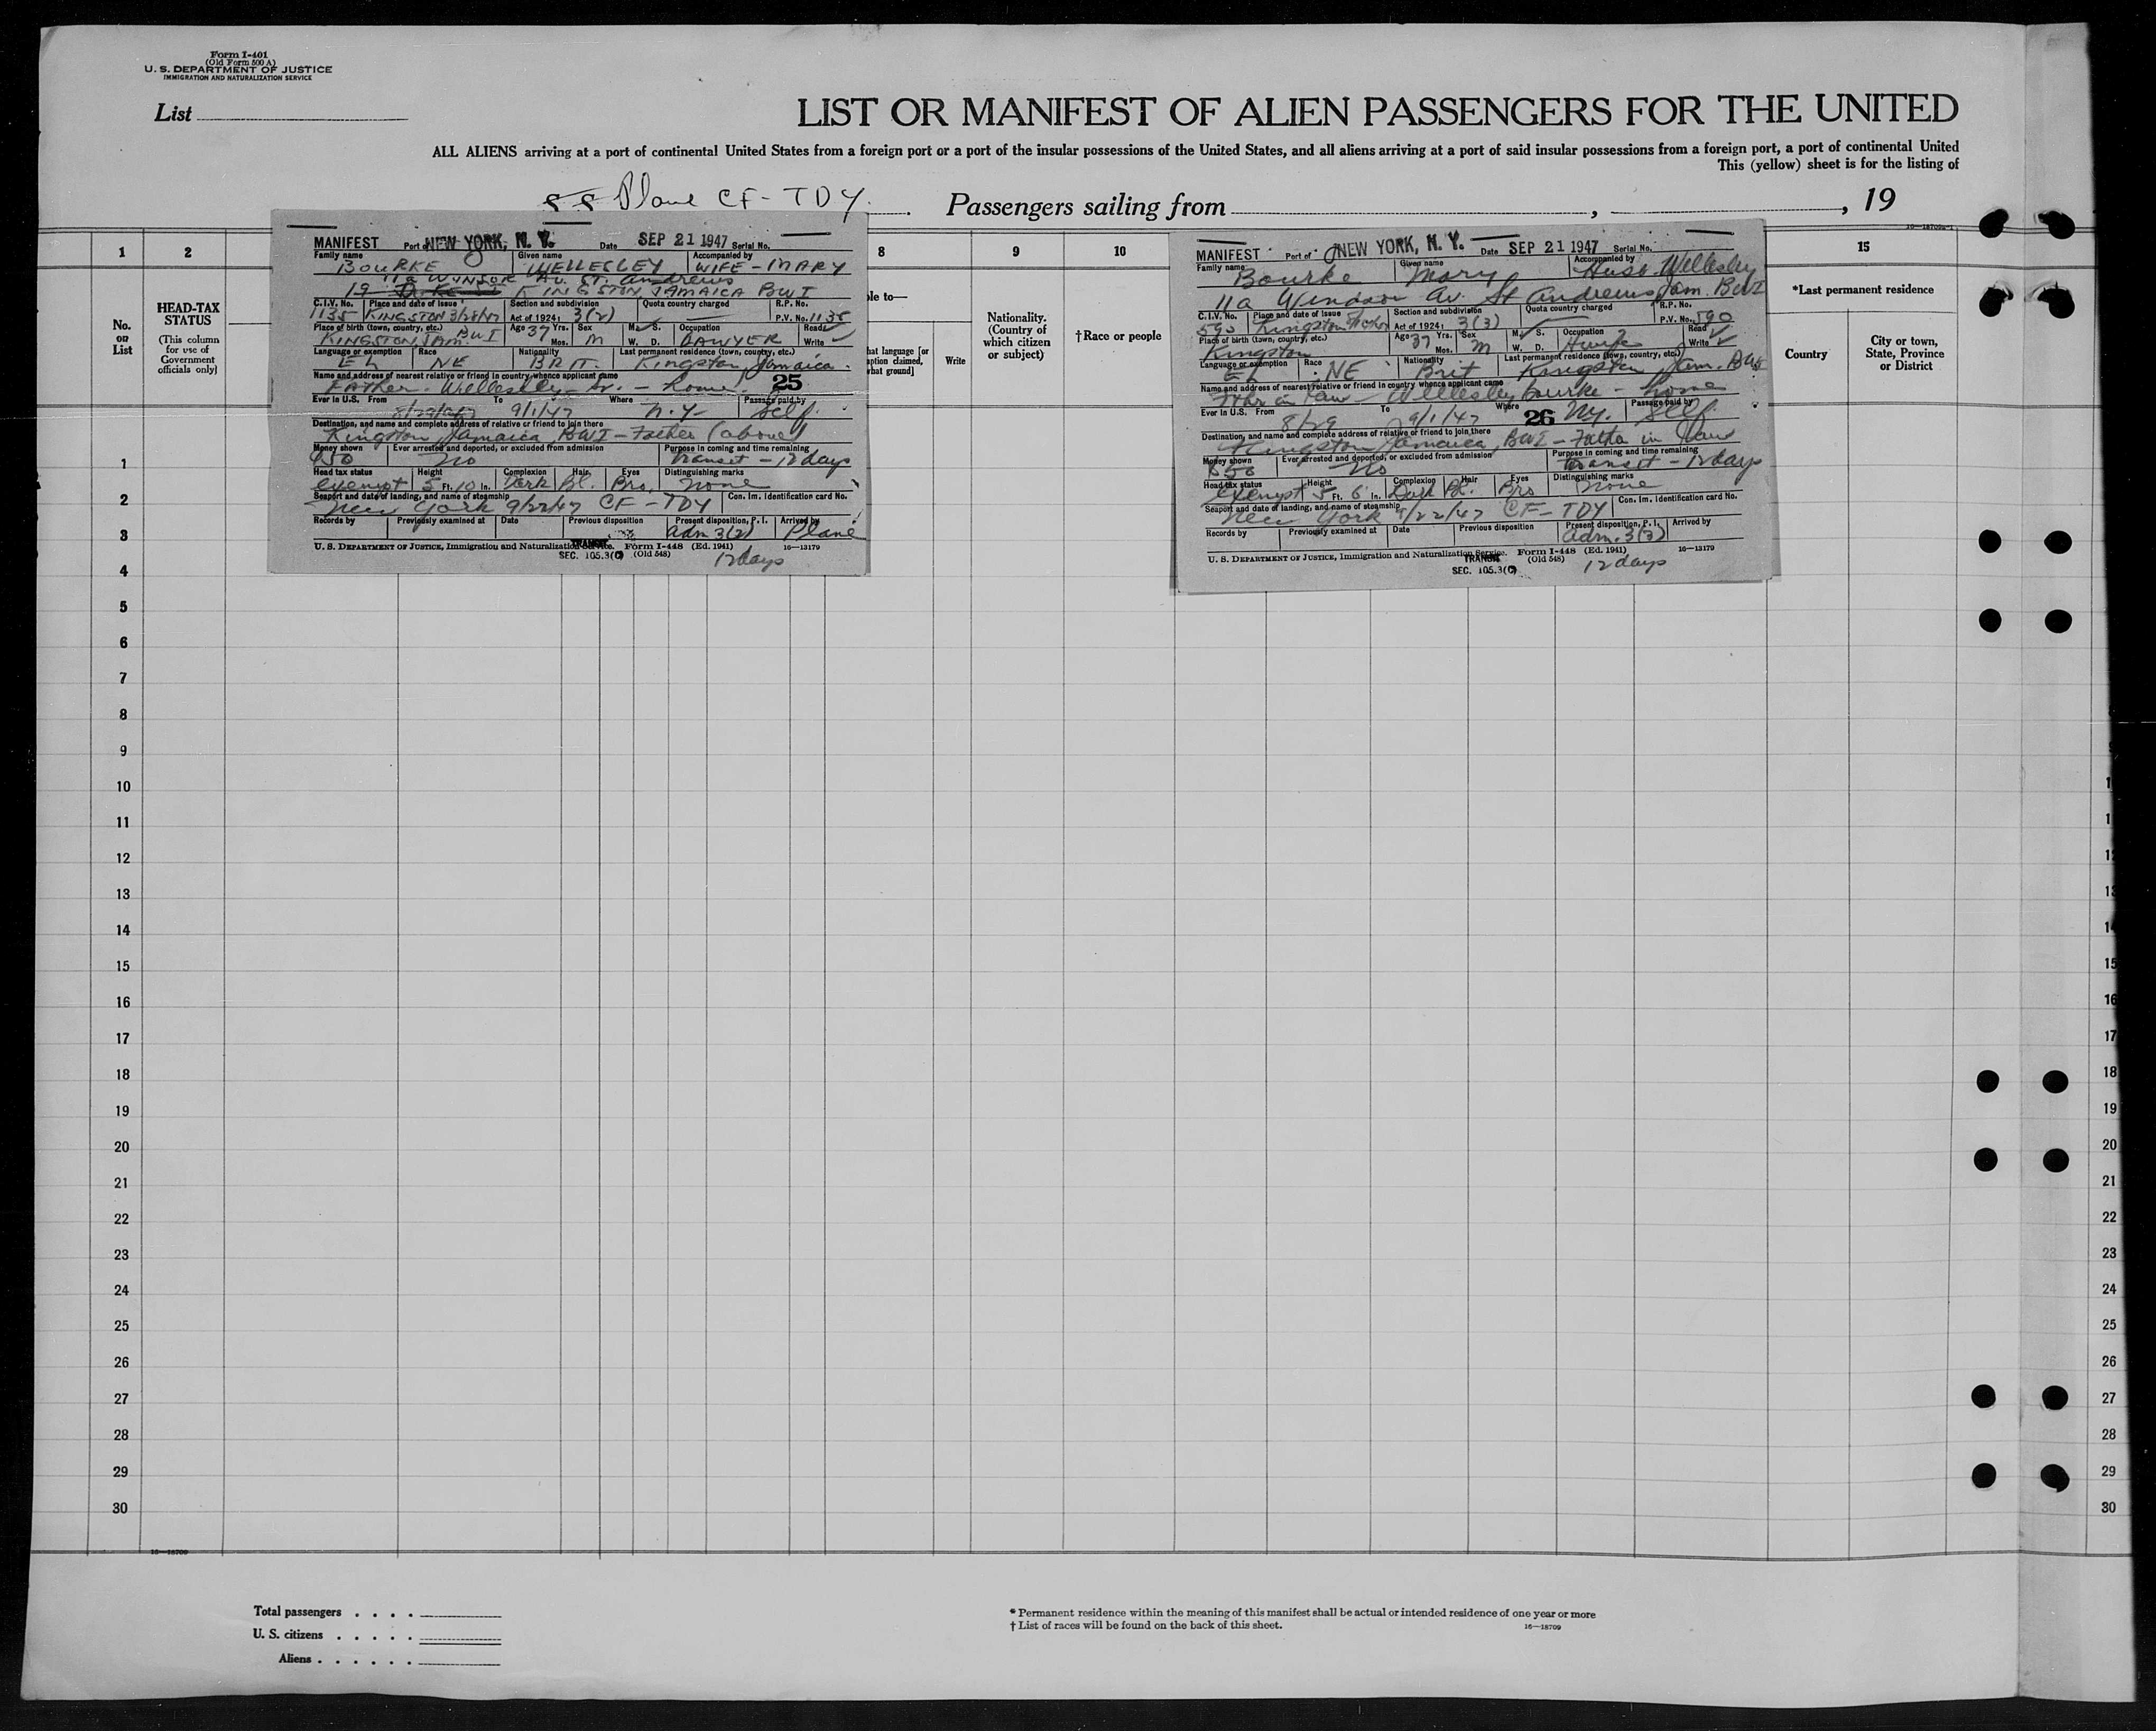 Form I-401
(Old Form 500 A)
U. S. DEPARTMENT OF JUSTICE
IMMIGRATION AND NATURALIZATION SERVICE
List
LIST OR MANIFEST OF ALIEN PASSENGERS FOR THE UNITED
ALL ALIENS arriving at a port of continental United States from a foreign port or a port of the insular possessions of the United States, and all aliens arriving at a port of said insular possessions from a foreign port, a port of continental United
This (yellow) sheet is for the listing of
SS Plane CF-TDY. Passengers sailing from , , 19
1 2 8 9 10 15
No. on List
HEAD-TAX STATUS
(This column for use of Government officials only)
Write
Nationality. (Country of which citizen or subject)
†Race or people
*Last permanent residence
Country
City or town, State, Province or District
MANIFEST Port of NEW YORK, N. Y. Date SEP 21 1947 Serial No.
Family name Given name Accompanied by
BOURKE WELLESLEY WIFE - MARY
11a WINSOR Av. ST. Andrews
19 KINGSTON JAMAICA BWI
C.I.V. No. Place and date of issue Section and subdivision Quota country charged R.P. No.
1135 KINGSTON 3/28/47 Act of 1924: 3(2) — P.V. No. 1135
Place of birth (town, country, etc.) Age Yrs. Sex M. S. Occupation Read
KINGSTON JAM. BWI 37 Mos. M W. D. LAWYER Write
Language or exemption Race Nationality Last permanent residence (town, country, etc.)
EL NE BRIT. Kingston, Jamaica.
Name and address of nearest relative or friend in country whence applicant came
Father. Wellesley Sr. - home. 25
Ever in U.S. From To Where Passage paid by
8/29/47 9/1/47 N.Y. Self.
Destination, and name and complete address of relative or friend to join there
Kingston, Jamaica, BWI - Father (above)
Money shown Ever arrested and deported, or excluded from admission Purpose in coming and time remaining
$50 No transit - 12 days
Head tax status Height Complexion Hair Eyes Distinguishing marks
exempt 5 Ft. 10 In. Dark Bl. Bro. None
Seaport and date of landing, and name of steamship Con. Im. Identification card No.
New York 9/22/47 CF-TDY
Records by Previously examined at Date Previous disposition Present disposition, P. I. Arrived by
Adm 3(2) Plane
U. S. DEPARTMENT OF JUSTICE, Immigration and Naturalization Service. Form I-448 (Ed. 1941) 16—13179
TRANSIT (Old 548)
SEC. 105.3(C) 12 days
MANIFEST Port of NEW YORK, N. Y. Date SEP 21 1947 Serial No.
Family name Given name Accompanied by
Bourke Mary Husb. Wellesley
11a Windsor Av. St Andrews Jam. BWI
C.I.V. No. Place and date of issue Section and subdivision Quota country charged R.P. No.
590 Kingston Act of 1924: 3(3) P.V. No. 590
Place of birth (town, country, etc.) Age Yrs. Sex M. S. Occupation Read
Kingston 37 Mos. M W. D. Hwife Write
Language or exemption Race Nationality Last permanent residence (town, country, etc.)
EL NE Brit Kingston Jam. BWI
Name and address of nearest relative or friend in country whence applicant came
in law - Wellesley Bourke - home
Ever in U.S. From To Where Passage paid by
8/29 9/1/47 26 Ny. Self.
Destination, and name and complete address of relative or friend to join there
Kingston, Jamaica, BWI - Father in law
Money shown Ever arrested and deported, or excluded from admission Purpose in coming and time remaining
$50 No transit - 12 days
Head tax status Height Complexion Hair Eyes Distinguishing marks
exempt 5 Ft. 6 In. Dark Bl. Bro None
Seaport and date of landing, and name of steamship Con. Im. Identification card No.
New York 9/22/47 CF-TDY
Records by Previously examined at Date Previous disposition Present disposition, P. I. Arrived by
Adm. 3(3)
U. S. DEPARTMENT OF JUSTICE, Immigration and Naturalization Service. Form I-448 (Ed. 1941) 16—13179
TRANSIT (Old 548)
SEC. 105.3(C) 12 days
1
2
3
4
5
6
7
8
9
10
11
12
13
14
15
16
17
18
19
20
21
22
23
24
25
26
27
28
29
30
16—18709
Total passengers
U. S. citizens
Aliens
* Permanent residence within the meaning of this manifest shall be actual or intended residence of one year or more
† List of races will be found on the back of this sheet. 16—18709